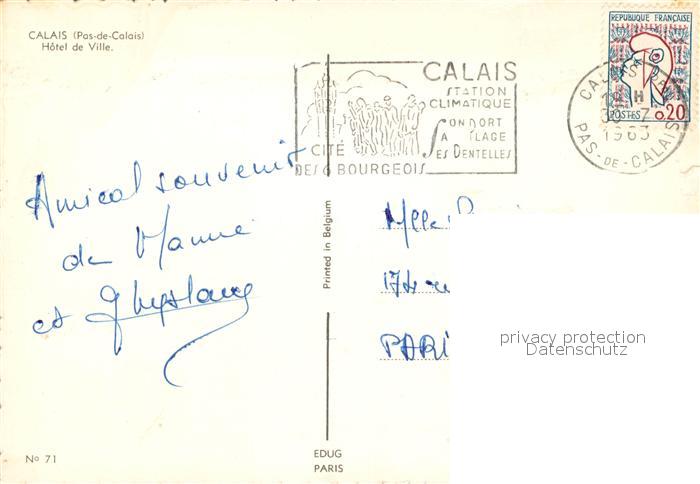 CALAIS (Pas-de-Calais)
Hôtel de Ville.
REPUBLIQUE FRANÇAISE
POSTES 0,20
CALAIS
18 H
30-7
1963
PAS-DE-CALAIS
CALAIS
STATION
CLIMATIQUE
SON PORT
SA PLAGE
SES DENTELLES
CITÉ
DES 6 BOURGEOIS
Amical souvenir
de
et
Printed in Belgium
Mlle
174
PARI
privacy protection
Datenschutz
Nº 71
EDUG
PARIS